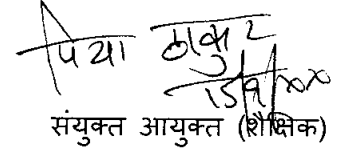 पिया ठाकुर
15/9/xx
संयुक्त आयुक्त (शैक्षिक)